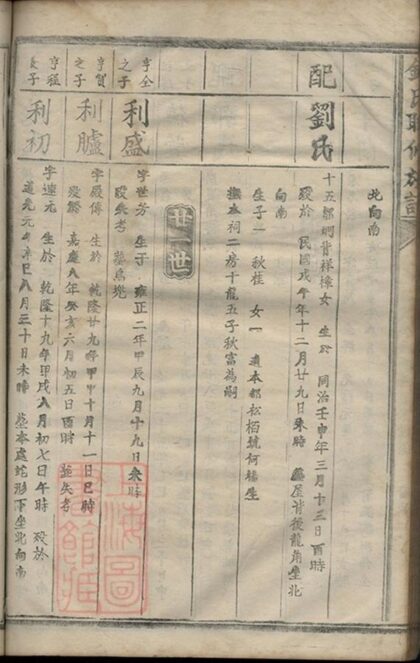 北向南
配
劉氏
十五都硐背祥樟女 生於 同治壬申年三月十三日酉時
歿於 民國戊午年十二月廿九日未時 塟屋背後龍角坐北
向南
生子一 秋桂 女一 適本都松栢號何
撫本祠二房十龍五子秋富為嗣
廿一世
亨全
之子
利盛
字世芳 生于 雍正二年甲辰九月十九日未時
歿失考 塟烏
亨賀
之子
利臚
字殿傳 生於 乾隆廿九年甲申十月十一日巳時
歿於 嘉慶八年癸亥六月初五日酉時 塟失考
亨程
長子
利初
字速元 生於 乾隆十九年甲戌八月初七日午時 歿於
道光元年辛巳八月三十日未時 塟本處蛇形下坐北向南
上海圖
書館藏